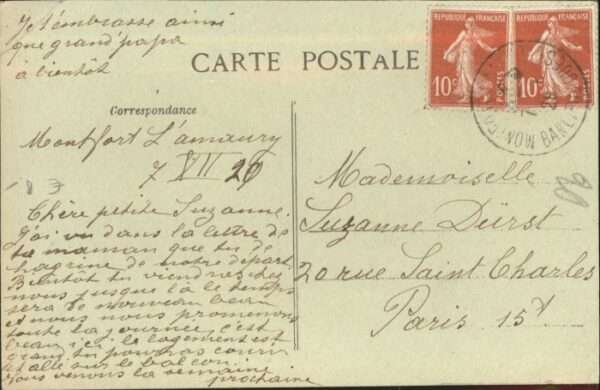 Je t'embrasse ainsi
que grand'papa
à bientôt
CARTE POSTALE
REPUBLIQUE FRANÇAISE
10c
POSTES
REPUBLIQUE FRANÇAISE
10c
Correspondance
Montfort L'amaury
7 VII 20
Chère petite Suzanne.
J'ai vu dans la lettre de
ta maman que tu de
chagrine de notre départ.
Bientôt tu viendras chez
nous jusque là le temps
sera de nouveau beau
et nous nous promenons
toute la journée, c'est
beau ici. le logement est
grand, tu pourras courir
et aller sur le balcon.
nous venons la semaine
prochaine
Mademoiselle
Suzanne Dürst
20 rue Saint Charles
Paris 15e